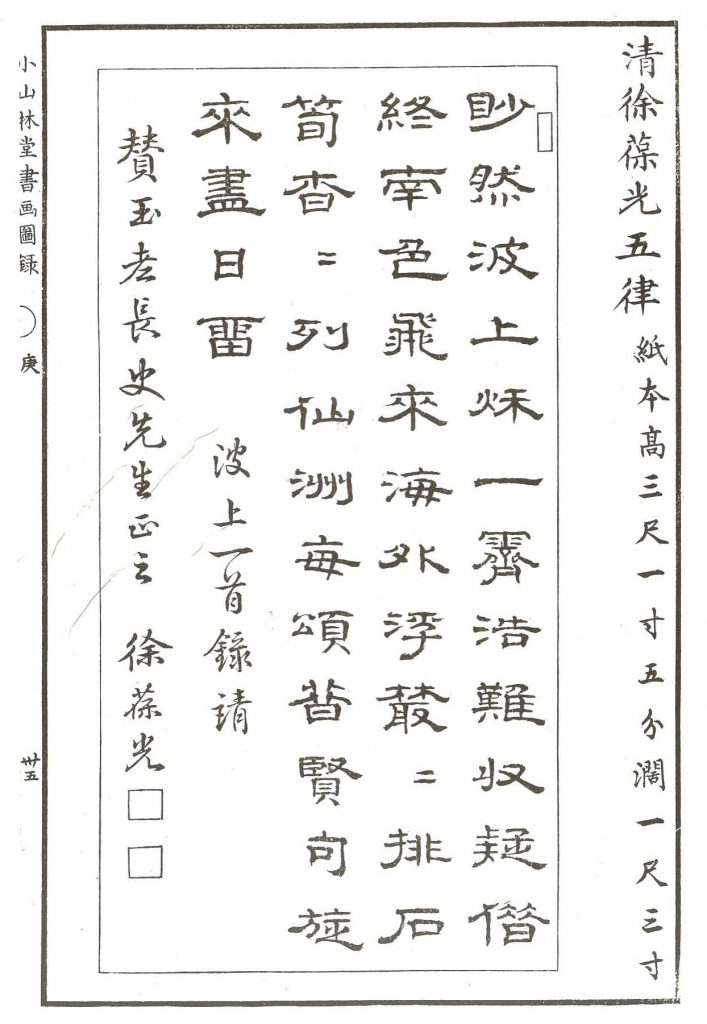 清徐葆光五律 紙本高三尺一寸五分濶一尺三寸
眇然波上秌一霽浩難収疑借
終南色飛來海外浮叢〻排石
筍杳〻列仙洲每頌昔賢句旋
來盡日畱 波上一首錄請
贊玉老長史先生正之 徐葆光
小山林堂書画圖録 庚 卅五